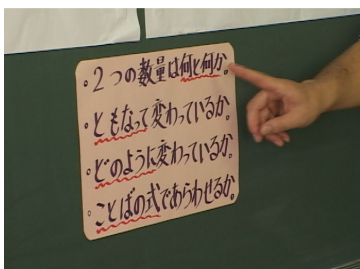 ・2つの数量は何と何か。
・ともなって変わっているか。
・どのように変わっているか。
・ことばの式であらわせるか。